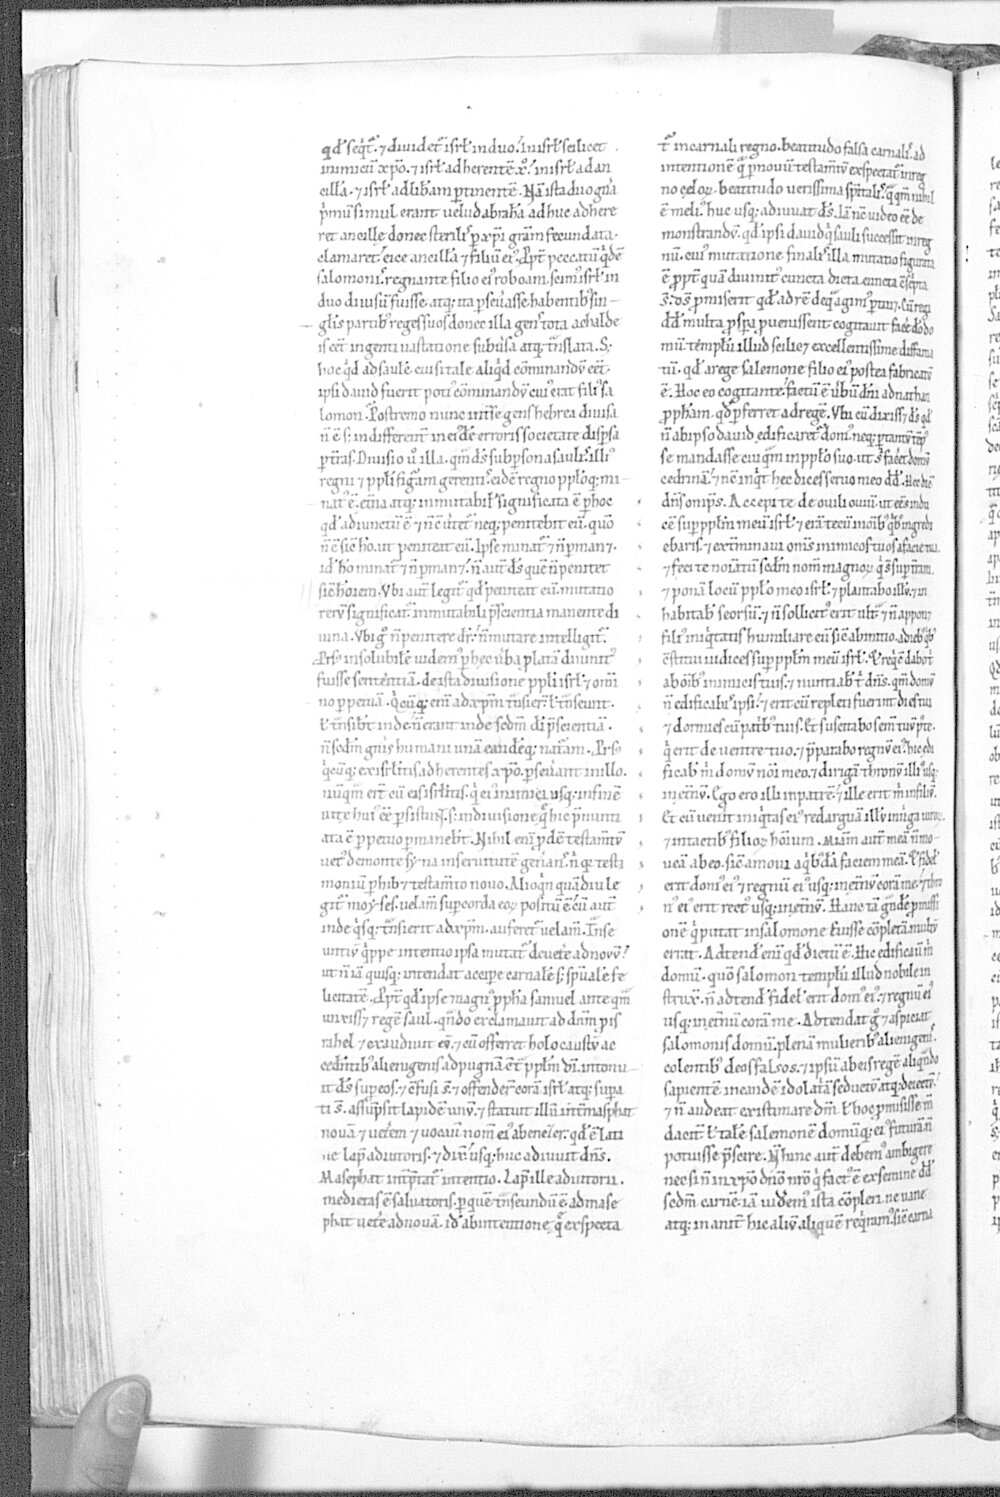 qđ seq̄t᷑. ⁊ diuidet᷑ isrł in duo. in isrł scilicet
inimicū xp̄o. ⁊ isrł adherentē x̊. in isrł ad an
cillā. ⁊ isrł ad libam ꝑtinentē. Nā ista duo gña
p̄mū simul erant uelud abrahā adhuc adhere
ret ancille donec sterilis ꝑ xp̄i grām fecundata.
clamaret. eice ancillā ⁊ filiū ei᷒. Ꝓpt̄ peccatū qͥdē
salomonis. regnante filio ei᷒ roboam. scim᷒ isrł in
duo diuisū fuisse. atq; ita ꝑseuasse. habentib᷒ sin
glis partib᷒ reges suos donec illa gens tota a chalde
is eēt ingenti uastatione subusa atq; tn̄slata. S;
hoc qͥd ad saulē. cui si tale aliqͥd cōminandū eēt.
ipsi dauid fuerit poti᷒ cōminandū cui᷒ erat fili᷒ sa
lomon. Postremo nunc int̄ se gens hebrea diuisa
n̄ ē s; indifferent̄ in ei᷒dē erroris societate disꝑsa
ꝑ t̄ras. Diuisio ů illa. qm̄ dš sub ꝑsona saulis. illi᷒
regni ⁊ pp̄li figurā gerentis. eidē regno pp̄loq; mi
nat᷒ ē. et̄na atq; inmutabil᷒ significata ē ꝑ hoc
qđ adiunctū ē ⁊ n̄ c̄uertet᷑ neq; penitebit eū. quō
n̄ ē sic hō. ut peniteat eū. Ipse minat᷑ ⁊ n̄ ꝑman⁊.
id hō minat᷑ ⁊ n̄ ꝑman⁊. n̄ aut̄ dš quē n̄ penitet
sic hōiem. Vbi aut̄ legit᷑ qđ peniteat eū. mutatio
rerū significat᷑. inmutabili p̄scientia manente di
uina. Vbi gͦ n̄ penitere dr̄. n̄ mutare intelligit᷑.
Prs᷒ insolubilē uidem᷒ ꝑ hec ůba ꝓlatā diuinit᷒
fuisse sententiā. de ista diuisione pp̄li isrł ⁊ om̄i
no ꝑpetuā. Qͥcūq; eni ad xp̄m tn̄sier. ł tn̄seunt.
ł tn̄sibt̄ inde. n̄ erant inde scdm̄ di p̄scientiā.
n̄ scdm̄ gn̄is humani unā eandēq; natām. Prs᷒
qͥcūq; ex isrłitis adherentes xp̄o. ꝑseuant in illo.
nūqm̄ ert̄ cū eis isrłitis. qͥ ei᷒ inimici usq; in finē
uite hui᷒ eē ꝑsistunt. s; in diuisione q̄ hic p̄nunti
ata ē ꝑpetuo ꝑmanebt̄. Nihil eni ꝓdē testam̄tū
uet᷒ de monte syna in seruitutē genans. n̄ qͥ testi
moniū ꝑhib⁊ testam̄to nouo. Alioqͥn quādiu le
git᷑ moyses. uelam̄ sup corda eoꝝ positū ē. cū aut̄
inde qͥsq; tn̄sierit ad xp̄m. auferet᷑ uelam̄. In se
untiū qͥppe intentio ipsa mutat᷑ de uetere ad nouū.
ut n̄ iā quisq; intendat accipe carnalē s; sp̄ualē fe
licitatē. Ꝓpt̄ qđ ipse magn᷒ ꝓpha samuel anteqm̄
unxiss⁊ regē saul. qn̄do exclamauit ad dnm̄ ꝓ is
rahel ⁊ exaudiuit eū. ⁊ cū offerret holocaustū ac
cedn̄tib᷒ alienigenis ad pugnā c̄t pp̄lm̄ di. intonu
it dš sup eos. ⁊ c̄fusi s̄. ⁊ offender̄ corā isrł atq; supa
ti s̄. assūpsit lapidē unū. ⁊ statuit illū int̄ masphat
nouā ⁊ uet̄em ⁊ uocauit nom̄ ei᷒ abenezer. qđ ē lati
ne lapis adiutoris. ⁊ dix̄. usq; huc adiuuit dn̄s.
Masephat int̄p̄tat᷑ intentio. Lapis ille adiutorii.
medietas ē saluatoris. ꝑ quē tn̄seundū ē a dmase
phat uet̄e ad nouā. id ē ab intentione q̄ exspecta
t᷑ in carnali regno. beatitudo falsa carnalis. ad
intentionē q̄ ꝑ nouū testam̄tū exspectat᷑ in reg
no celoꝝ. beatitudo uerissima sp̄italis. q̄ qm̄ nihil
ē meli᷒. huc usq; adiuuat dš. Iā nc̄ uideo eē de
monstrandū. qđ ipsi dauid qͥ sauli successit in reg
nū. cui᷒ mutatione finalis illa mutatio figurata
ē ꝓpt̄ quā diuinit᷒ cuncta dicta. cuncta c̄scpta
s̄. dš ꝓmiserit qđ ad rē de qua agim᷒ ꝑtin⁊. Cū regi
dđ multa ꝓspa ꝓuenissent. cogitauit facē dō do
mū. templū illud scilic⁊ excellentissime diffama
tū. qđ a rege salemone filio ei᷒ postea fabricatū
ē. Hoc eo cogitante. factū ē ůbū dn̄i ad nathan
ꝓpham. qđ ꝑferret ad regē. Vbi cū dixiss⁊ dš qđ
n̄ ab ipso dauid edificaret᷑ dom᷒. neq; ꝑ tantū tēp᷒
se mandasse cuiqm̄ in pp̄lo suo. ut s͛ facēt domū
cedrinā. ⁊ nc̄ inqͥt hec dices seruo meo dđ. Hec dicit
dn̄s omp̄s. Accepi te de ouili ouiū. ut eēs in du
cē sup pp̄lm̄ meū isrł. ⁊ erā tecū in oīb᷒ qͥb᷒ ingredi
ebaris. ⁊ ext̄minaui om̄s inimicos tuos a facie tua.
⁊ feci te noīatū scdm̄ nom̄ magnoꝝ qͥ s̄ sup t̄ram.
⁊ ponā locū pp̄lo meo isrł. ⁊ plantabo illū. ⁊ in
habitab̄ seorsū. ⁊ n̄ sollicit᷒ erit ult̄. ⁊ n̄ appon⁊
fili᷒ iniqͥtatis humiliare eū sic ab initio. a dieb᷒ qͥb᷒
c̄stitui iudices sup pp̄lm̄ meū isrł. Et reqͥē dabo t
ab oīb᷒ inimicis tuis. ⁊ nuntiab̄ t dn̄s. qm̄ domū
n̄ edificabis ipsi. ⁊ erit cū repleti fuerint dies tui
⁊ dormies cū patrib᷒ tuis. Et suscitabo sem̄ tuū p᷒ te.
qͥ erit de uentre tuo. ⁊ p̄parabo regnū ei᷒. hic edi
ficab̄ m̄ domū nōi meo. ⁊ dirigā thronū illi᷒ usq;
in et̄nū. Ego ero illi in patrē. ⁊ ille erit m̄ in filiū.
Et cū uen̄it iniqͥtas ei᷒. redarguā illū in uirga uiroꝝ.
⁊ in tactib᷒ filioꝝ hōium. Miam̄ aut̄ meā n̄ mo
ueā ab eo. sic amoui a qͥb᷒ đa faciem meā. Et fidel᷒
erit dom᷒ ei᷒ ⁊ regnū ei᷒ usq; in et̄nū corā me. ⁊ thro
n᷒ ei᷒ erit rect᷒ usq; in et̄nū. Hanc tā gn̄dē ꝓmissi
onē qͥ putat in salomone fuisse cōpletā. multū
errat. Adtendit eni qđ dictū ē. Hic edificauit m̄
domū. quō salomon templū illud nobile in
strux̄. n̄ adtendit fidelis erit dom᷒ ei᷒. ⁊ regnū ei᷒
usq; in et̄nū corā me. Adtendat gͦ ⁊ aspiciat
salomonis domū. plenā mulierib᷒ alienigenis
colentib᷒ deos falsos. ⁊ ipsū ab eis regē aliqn̄do
sapientē in eandē idolat̄ā seductū atq; deiectū.
⁊ n̄ audeat existimare dm̄. ł hoc ꝓmisisse m̄
dacit̄. ł talē salemonē domūq; ei᷒ futurā n̄
potuisse p̄scire. N̄ hinc aut̄ debem᷒ ambigere
nec si n̄ in xp̄o dn̄o nr̄o qͥ fact᷒ ē ex semine dđ
scdm̄ carnē. iā uiderem᷒ ista cōpleri. ne uane
atq; inanit̄ hic aliū aliquē reqͥram᷒ sic carna